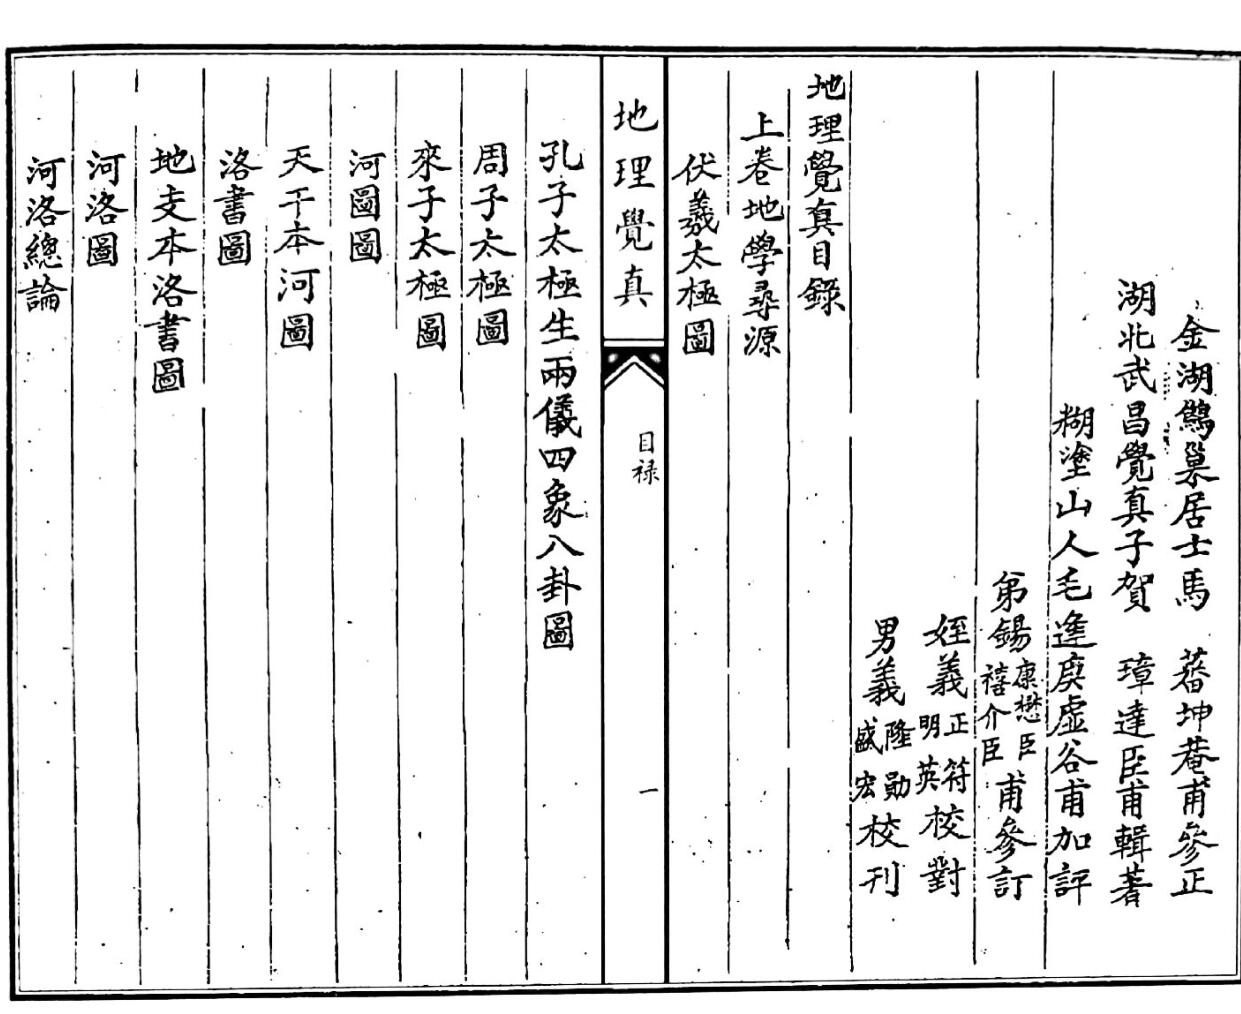 金湖鷦巢居士馬 蕃坤菴甫參正
湖北武昌覺真子賀 璋達臣甫輯著
糊塗山人毛逢庚虛谷甫加評
弟錫康懋臣禧介臣甫參訂
姪義正符明英校對
男義隆勛盛宏校刊
地理覺真目錄
上卷地學尋源
伏羲太極圖
地理覺真
目禄
一
孔子太極生兩儀四象八卦圖
周子太極圖
來子太極圖
河圖圖
天干本河圖
洛書圖
地支本洛書圖
河洛圖
河洛總論